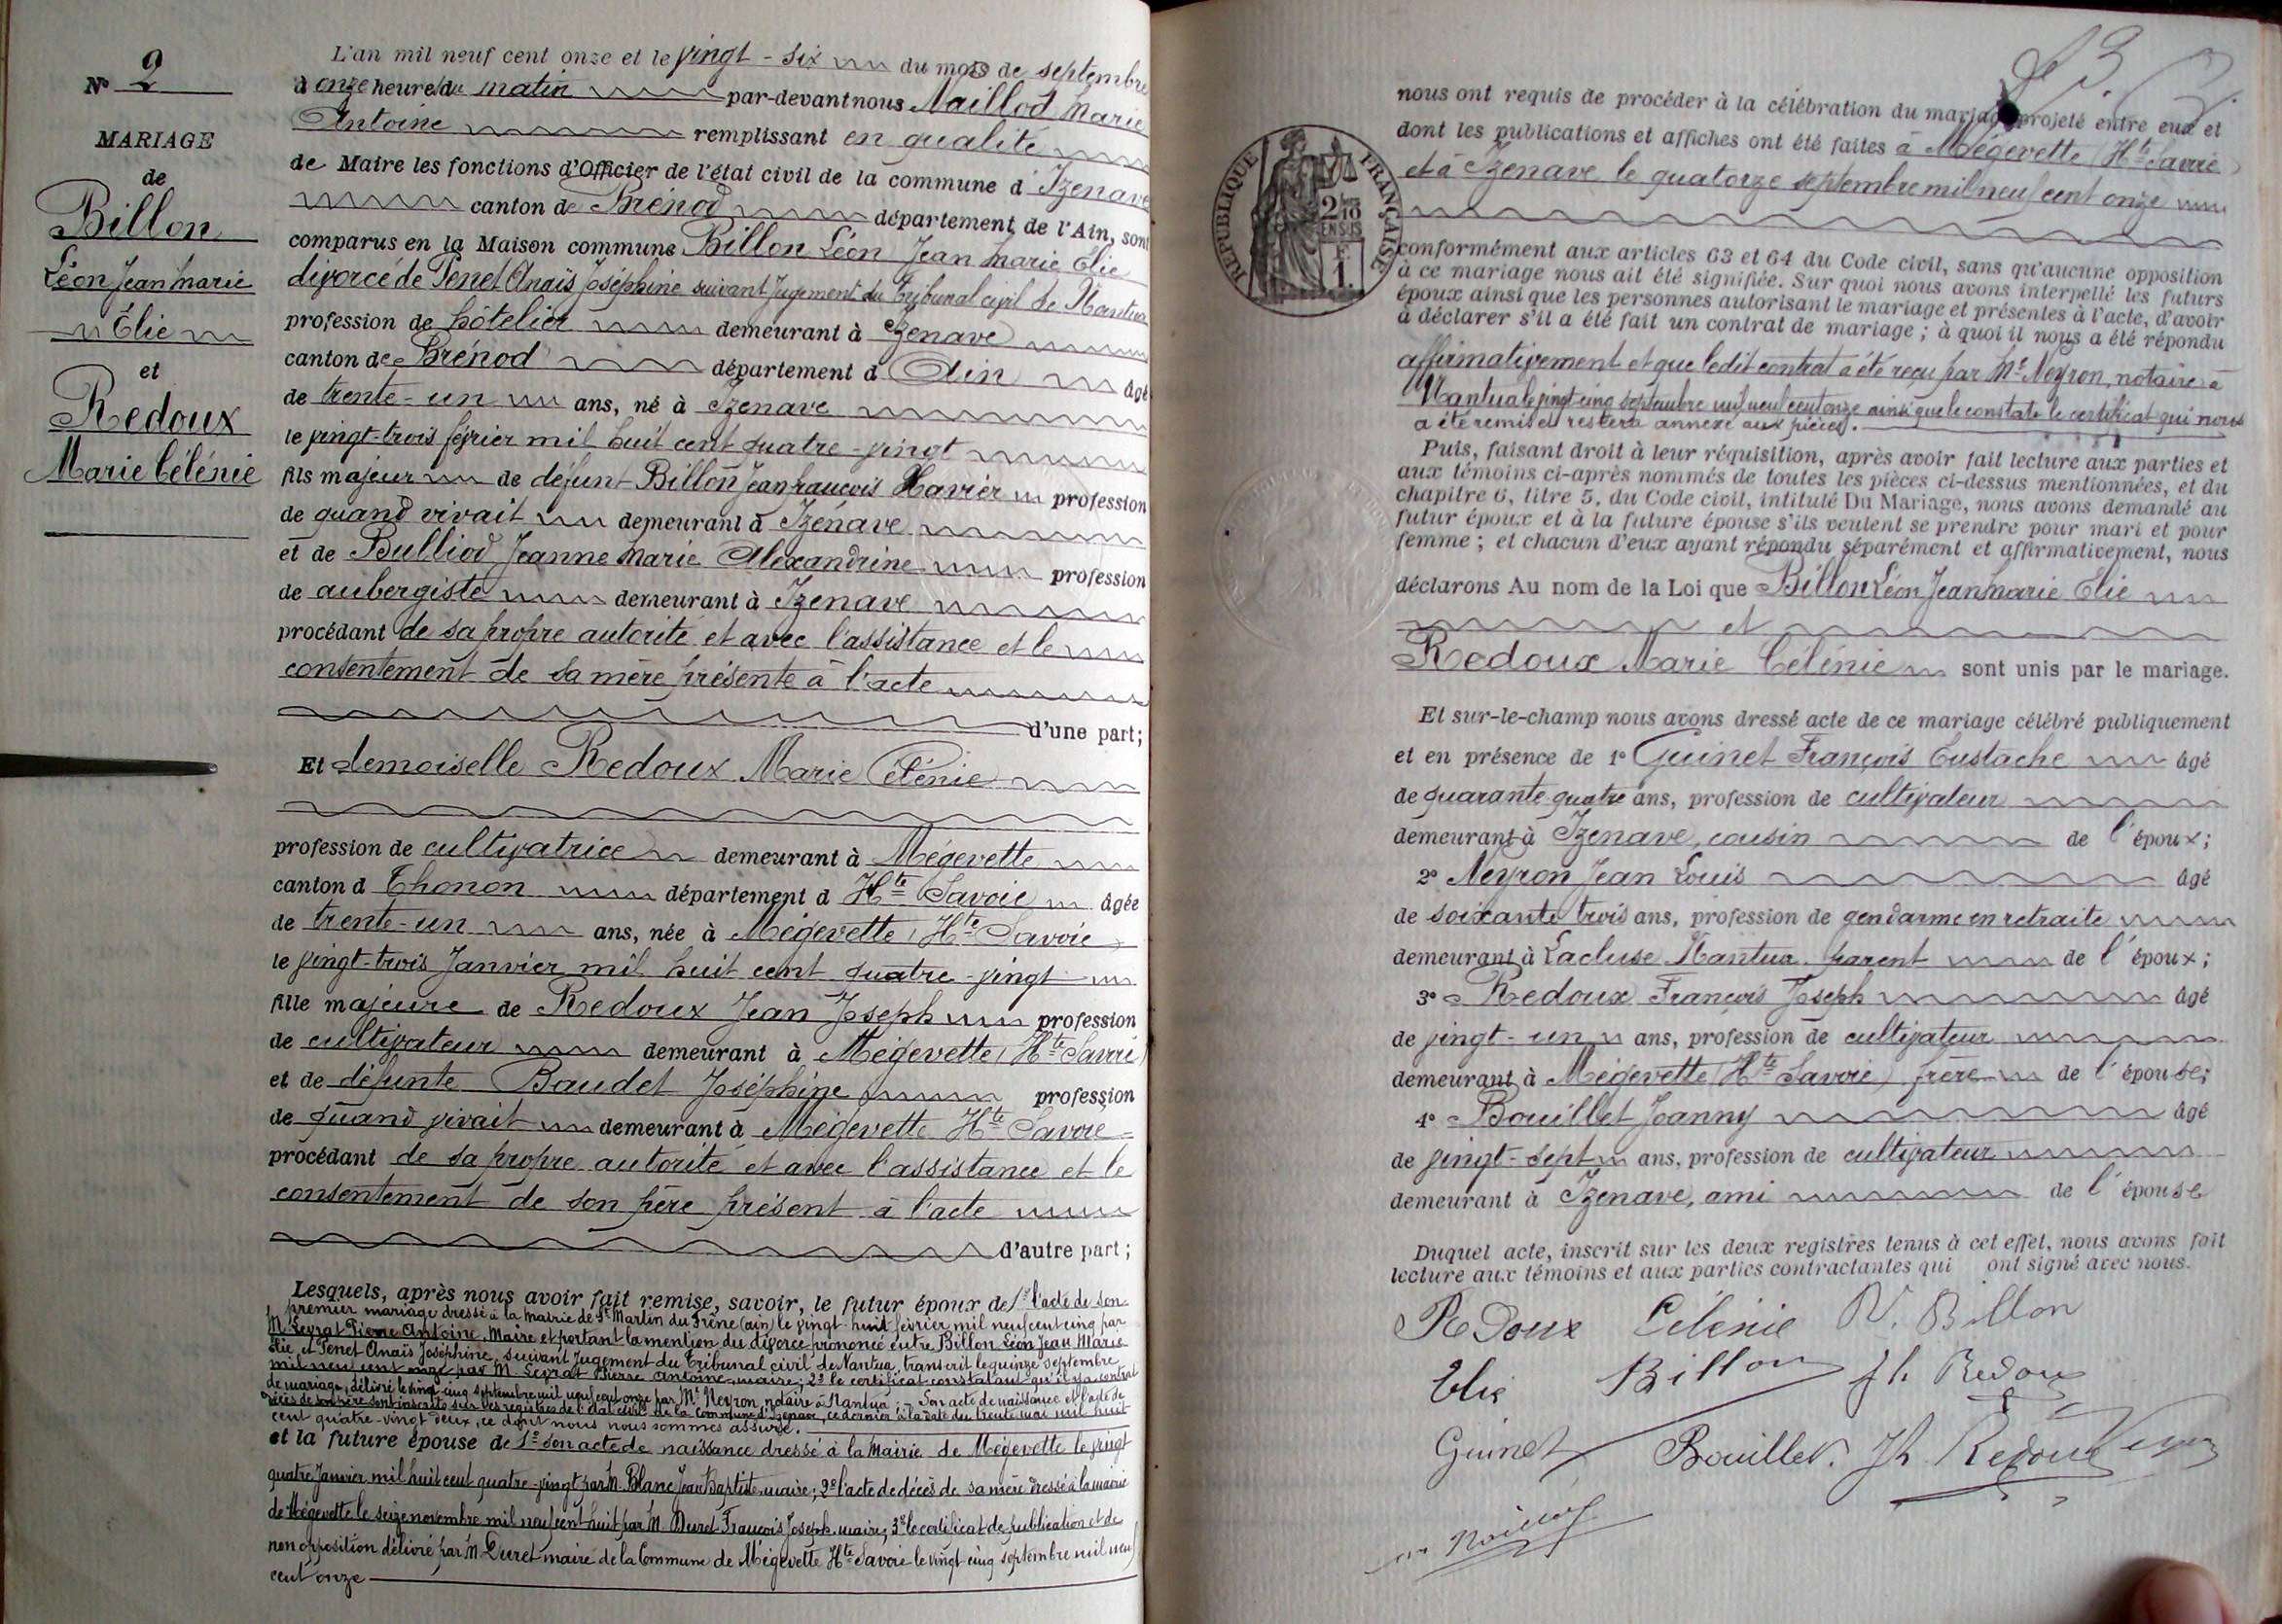 N° 2
MARIAGE
de
Billon
Léon Jean Marie
Élie
et
Redoux
Marie Célénie
L'an mil neuf cent onze et le vingt-six du mois de septembre
à onze heures du matin par-devant nous Naillod Marie
Antoine remplissant en qualité
de Maire les fonctions d'Officier de l'état civil de la commune d'Izenave
canton de Brénod département de l'Ain, sont
comparus en la Maison commune Billon Léon Jean Marie Elie
divorcé de Penet Anaïs Joséphine suivant Jugement du Tribunal civil de Nantua
profession de hôtelier demeurant à Izenave
canton de Brénod département d Ain âgé
de trente-un ans, né à Izenave
le vingt-trois février mil huit cent quatre-vingt
fils majeur de défunt Billon Jean françois Xavier profession
de quand vivait demeurant à Izénave
et de Bulliod Jeanne Marie Alexandrine profession
de aubergiste demeurant à Izenave
procédant de sa propre autorité et avec l'assistance et le
consentement de sa mère présente à l'acte
d'une part;
Et demoiselle Redoux Marie Célénie
profession de cultivatrice demeurant à Mégevette
canton d Thonon département d Hte Savoie âgée
de trente-un ans, née à Mégevette, Hte Savoie
le vingt-trois Janvier mil huit cent quatre-vingt
fille majeure de Redoux Jean Joseph profession
de cultivateur demeurant à Mégevette (Hte Savoie)
et de défunte Baudet Joséphine profession
de quand vivait demeurant à Mégevette Hte Savoie
procédant de sa propre autorité et avec l'assistance et le
consentement de son père présent à l'acte
d'autre part;
Lesquels, après nous avoir fait remise, savoir, le futur époux de 1° l'acte de son
premier mariage dressé à la mairie de St Martin du Frêne (ain) le vingt-huit février mil neuf cent cinq par
M. Leyrat Pierre Antoine, Maire et portant la mention du divorce prononcé entre Billon Léon Jean Marie
Elie et Penet Anaïs Joséphine, suivant Jugement du Tribunal civil de Nantua, transcrit le quinze septembre
mil neuf cent onze par M. Leyrat Pierre Antoine, maire; 2° le certificat constatant qu'il y a contrat
de mariage, délivré le vingt-cinq septembre mil neuf cent onze par Me Neyron, notaire à Nantua; - Son acte de naissance et l'acte de
décès de son père sont inscrits sur les registres de l'état civil de la commune d'Izenave, ce dernier à la date du trente mai mil huit
cent quatre-vingt deux, ce dont nous nous sommes assuré.
et la future épouse de 1° son acte de naissance dressé à la Mairie de Mégevette le vingt
quatre Janvier mil huit cent quatre-vingt par M. Blanc Jean Baptiste, maire; 2° l'acte de décès de sa mère dressé à la mairie
de Mégevette le seize novembre mil neuf cent huit par M. Duret François Joseph, maire; 3° le certificat de publication et de
non opposition délivré par M. Duret maire de la Commune de Mégevette Hte Savoie le vingt cinq septembre mil neuf
cent onze
nous ont requis de procéder à la célébration du mariage projeté entre eux et
dont les publications et affiches ont été faites à Mégevette (Hte Savoie)
et à Izenave le quatorze septembre mil neuf cent onze
RÉPUBLIQUE FRANÇAISE
2/10
EN SUS
F
1.
conformément aux articles 63 et 64 du Code civil, sans qu'aucune opposition
à ce mariage nous ait été signifiée. Sur quoi nous avons interpellé les futurs
époux ainsi que les personnes autorisant le mariage et présentes à l'acte, d'avoir
à déclarer s'il a été fait un contrat de mariage; à quoi il nous a été répondu
affirmativement et que ledit contrat a été reçu par Me Neyron, notaire à
Nantua le vingt cinq septembre mil neuf cent onze ainsi que le constate le certificat qui nous
a été remis et restera annexé aux pièces.
Puis, faisant droit à leur réquisition, après avoir fait lecture aux parties et
aux témoins ci-après nommés de toutes les pièces ci-dessus mentionnées, et du
chapitre 6, titre 5, du Code civil, intitulé Du Mariage, nous avons demandé au
futur époux et à la future épouse s'ils veulent se prendre pour mari et pour
femme; et chacun d'eux ayant répondu séparément et affirmativement, nous
déclarons Au nom de la Loi que Billon Léon Jean Marie Elie
et
Redoux Marie Célénie sont unis par le mariage.
Et sur-le-champ nous avons dressé acte de ce mariage célébré publiquement
et en présence de 1° Guinet François Eustache âgé
de quarante quatre ans, profession de cultivateur
demeurant à Izenave, cousin de l'époux;
2° Neyron Jean Louis âgé
de soixante trois ans, profession de gendarme en retraite
demeurant à Lacluse Nantua parent de l'époux;
3° Redoux François Joseph âgé
de vingt-un ans, profession de cultivateur
demeurant à Mégevette (Hte Savoie) frère de l'épouse;
4° Bouillet Joanny âgé
de vingt-sept ans, profession de cultivateur
demeurant à Izenave, ami de l'épouse
Duquel acte, inscrit sur les deux registres tenus à cet effet, nous avons fait
lecture aux témoins et aux parties contractantes qui ont signé avec nous.
Redoux Célénie V. Billon
Elie Billon Jh Redoux
Guinet Bouillet. Jh Redoux Neyron
Naillod